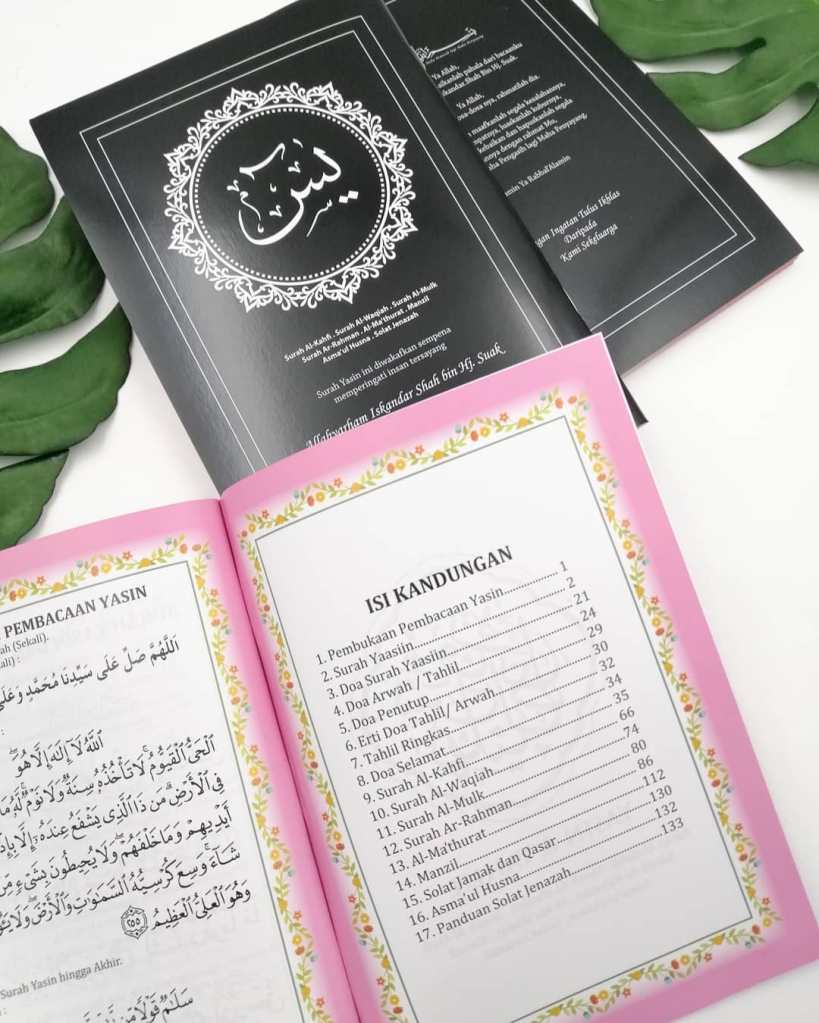 يس
Surah Al-Kahfi . Surah Al-Waqiah . Surah Al-Mulk
Surah Ar-Rahman . Al-Ma'thurat . Manzil
Asma'ul Husna . Solat Jenazah
Surah Yasin ini diwakafkan sempena
memperingati insan tersayang
Allahyarham Iskandar Shah bin Hj. Suak
Ya Allah,
pahala dari bacaanku
Shah Bin Hj. Suak.
Ya Allah,
dosa-dosa nya, rahmatilah dia,
maafkanlah segala kesalahannya,
luaskanlah kuburnya,
kebaikan dan hapuskanlah segala
dengan rahmat Mu,
Pengasih lagi Maha Penyayang.
Ya Rabbal'Alamin
Ingatan Tulus Ikhlas
Daripada
Kami Sekeluarga
PEMBACAAN YASIN
(Sekali).
اَللّٰهُمَّ صَلِّ عَلَى سَيِّدِنَا مُحَمَّدٍ وَعَلَى
ٱللَّهُ لَآ إِلَٰهَ إِلَّا هُوَ
ٱلْحَىُّ ٱلْقَيُّومُ ۚ لَا تَأْخُذُهُۥ سِنَةٌ وَلَا نَوْمٌ ۚ لَّهُۥ مَا
فِى ٱلْأَرْضِ ۗ مَن ذَا ٱلَّذِى يَشْفَعُ عِندَهُۥٓ إِلَّا
أَيْدِيهِمْ وَمَا خَلْفَهُمْ ۖ وَلَا يُحِيطُونَ بِشَىْءٍ مِّنْ
شَآءَ ۚ وَسِعَ كُرْسِيُّهُ ٱلسَّمَٰوَٰتِ وَٱلْأَرْضَ ۖ وَلَا
وَهُوَ ٱلْعَلِىُّ ٱلْعَظِيمُ ٢٥٥
Surah Yasin hingga Akhir.
سَلَٰمٌ قَوْلًا مِّن
ISI KANDUNGAN
1. Pembukaan Pembacaan Yasin.................. 1
2. Surah Yaasiin.................. 2
3. Doa Surah Yaasiin.................. 21
4. Doa Arwah / Tahlil.................. 24
5. Doa Penutup.................. 29
6. Erti Doa Tahlil/ Arwah.................. 30
7. Tahlil Ringkas.................. 32
8. Doa Selamat.................. 34
9. Surah Al-Kahfi.................. 35
10. Surah Al-Waqiah.................. 66
11. Surah Al-Mulk.................. 74
12. Surah Ar-Rahman.................. 80
13. Al-Ma'thurat.................. 86
14. Manzil.................. 112
15. Solat Jamak dan Qasar.................. 130
16. Asma'ul Husna.................. 132
17. Panduan Solat Jenazah.................. 133